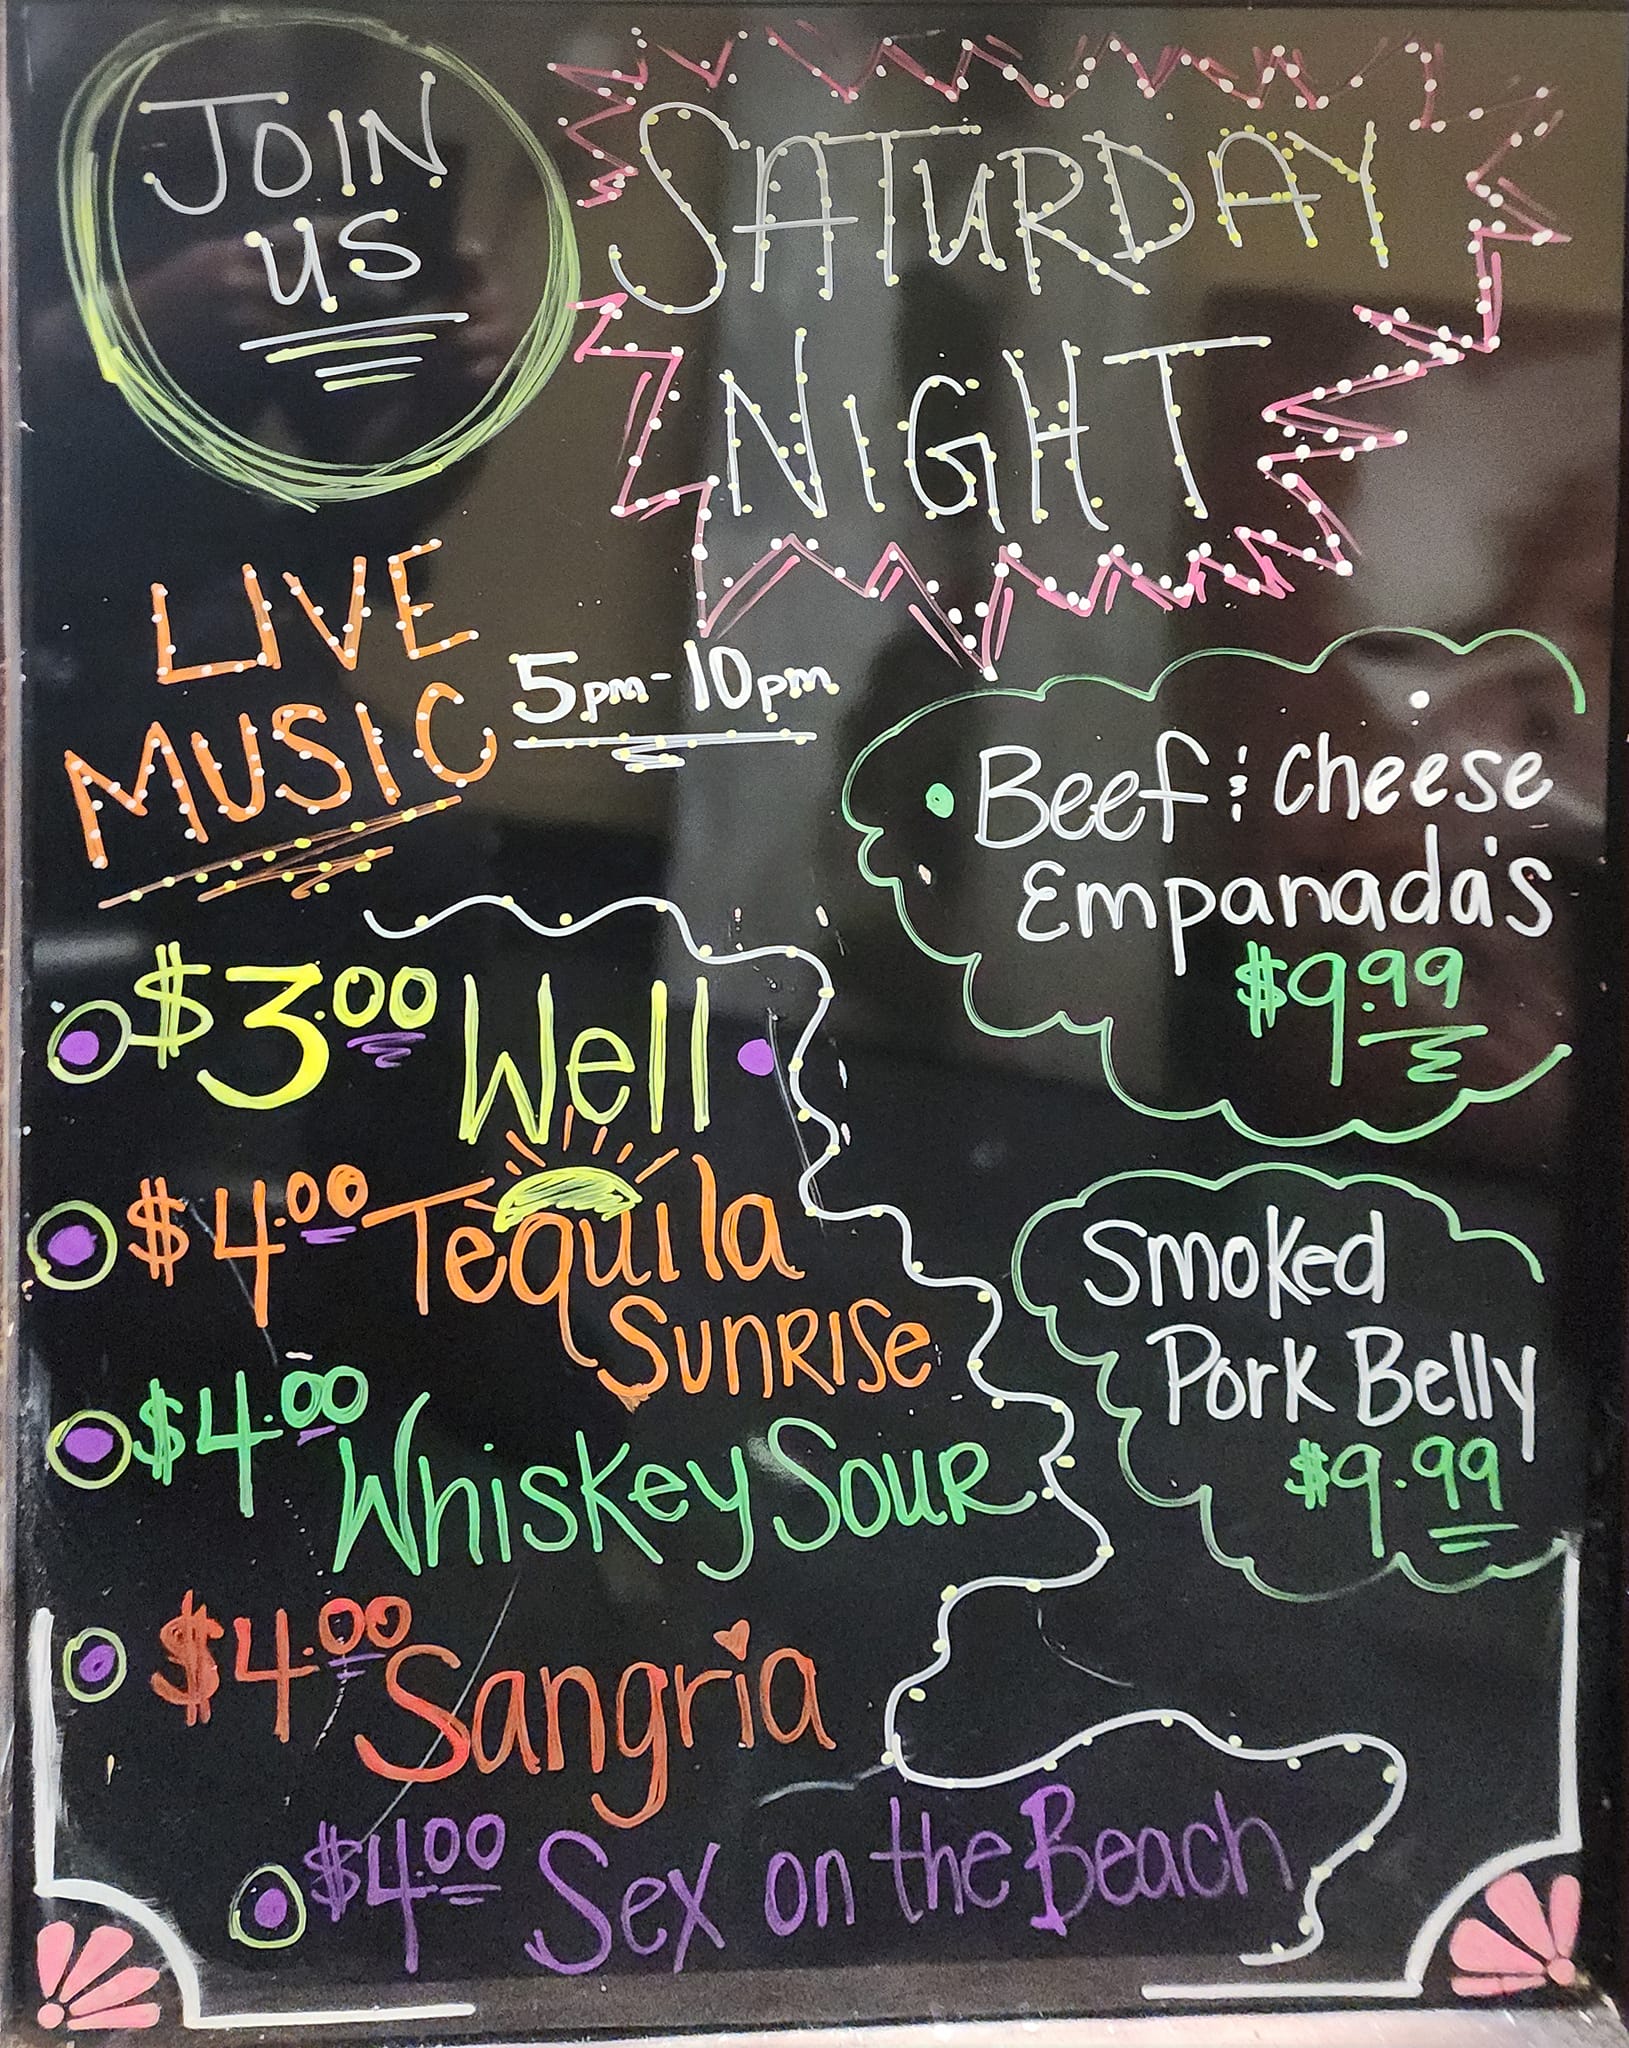 JOIN
US
SATURDAY
NIGHT
LIVE
MUSIC
5pm-10pm
Beef & Cheese
Empanada's
$9.99
$3.00 Well
$4.00 Tequila
Sunrise
Smoked
Pork Belly
$9.99
$4.00
Whiskey Sour
$4.00 Sangria
$4.00 Sex on the Beach